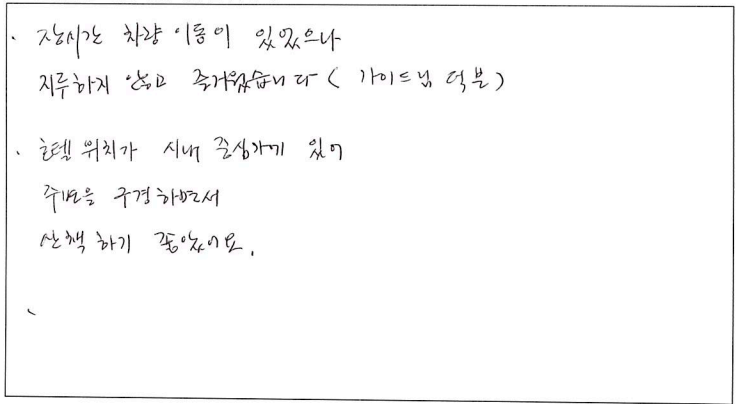 · 장시간 차량 이동이 있었으나
지루하지 않고 즐거웠습니다 ( 가이드님 덕분 )
· 호텔 위치가 시내 중심가에 있어
주변을 구경하면서
산책하기 좋았어요.